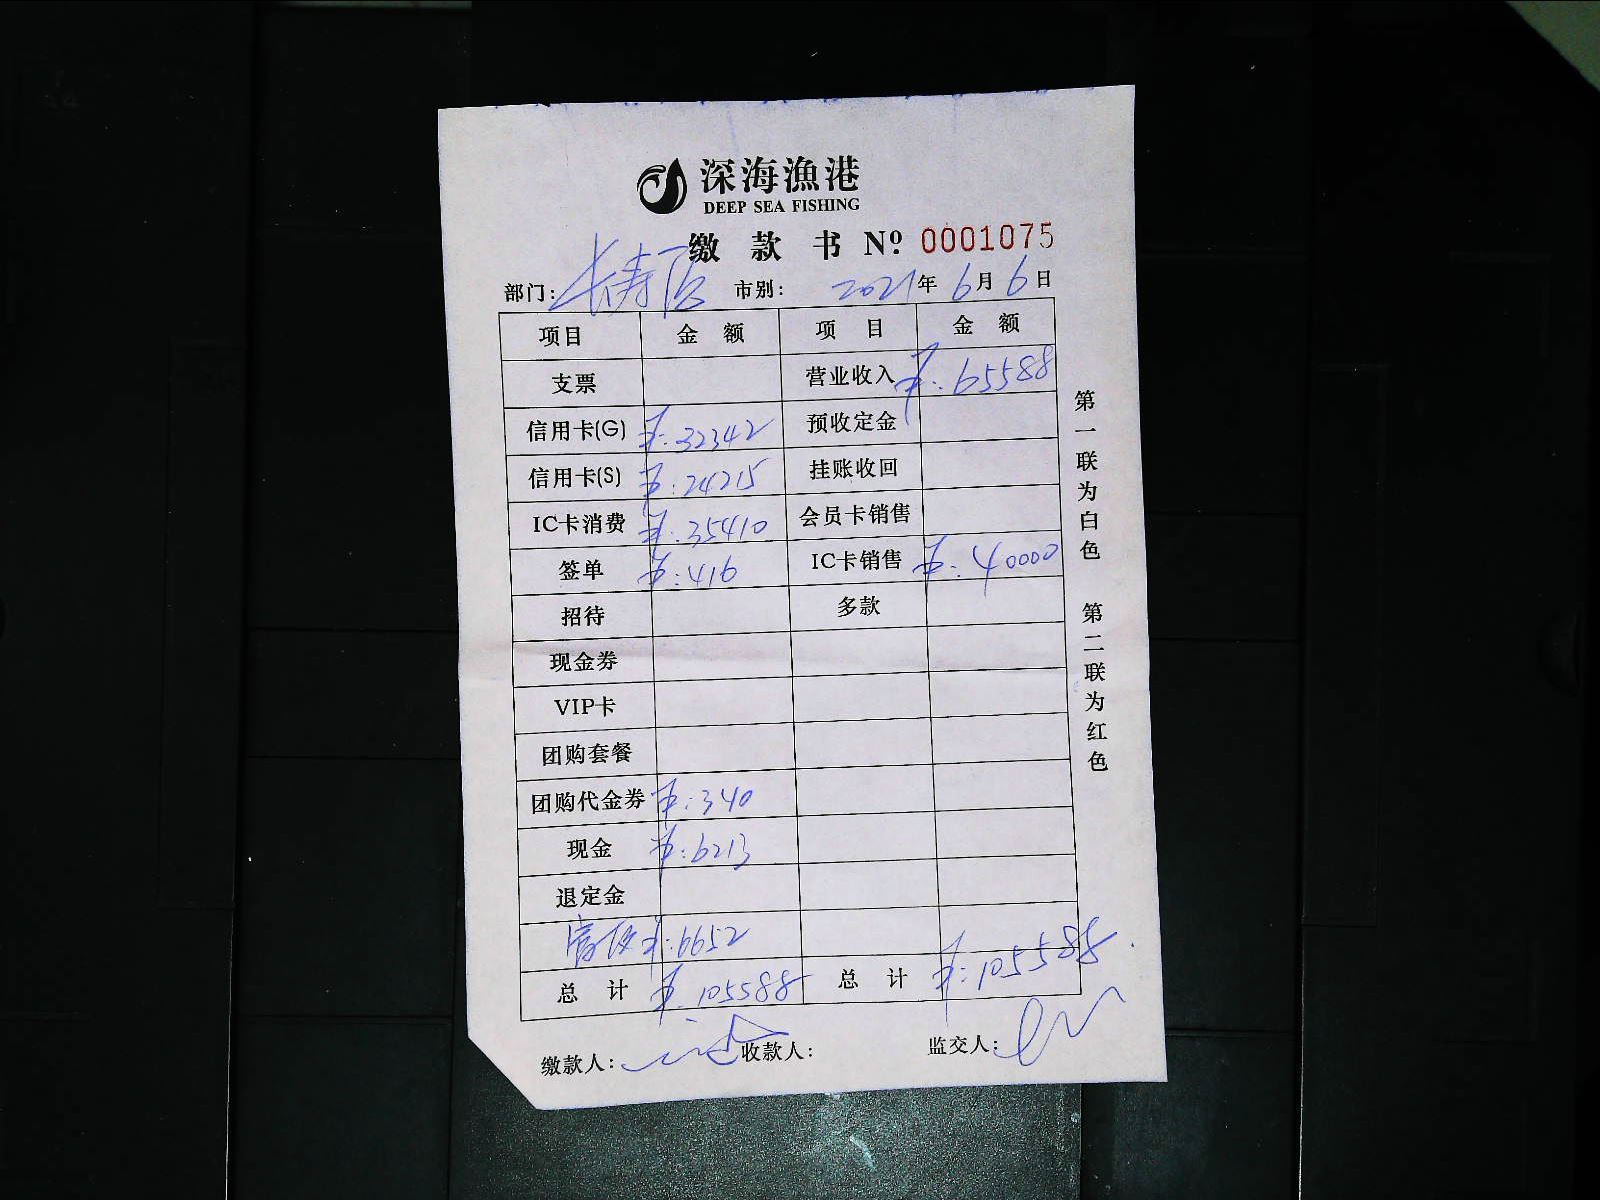 深海漁港
DEEP SEA FISHING
缴款书 Nº 0001075
部门: 长寿店 市别: 2021年6月6日
项目 金额 项目 金额
支票 营业收入 ¥:65588
信用卡(G) ¥:32342 预收定金
信用卡(S) ¥:24215 挂账收回
IC卡消费 ¥:35410 会员卡销售
签单 ¥:416 IC卡销售 ¥:40000
招待 多款
现金券
VIP卡
团购套餐
团购代金券 ¥:340
现金 ¥:6213
退定金
¥:6652
总计 ¥:105588 总计 ¥:105588
缴款人: 收款人: 监交人:
第一联为白色 第二联为红色